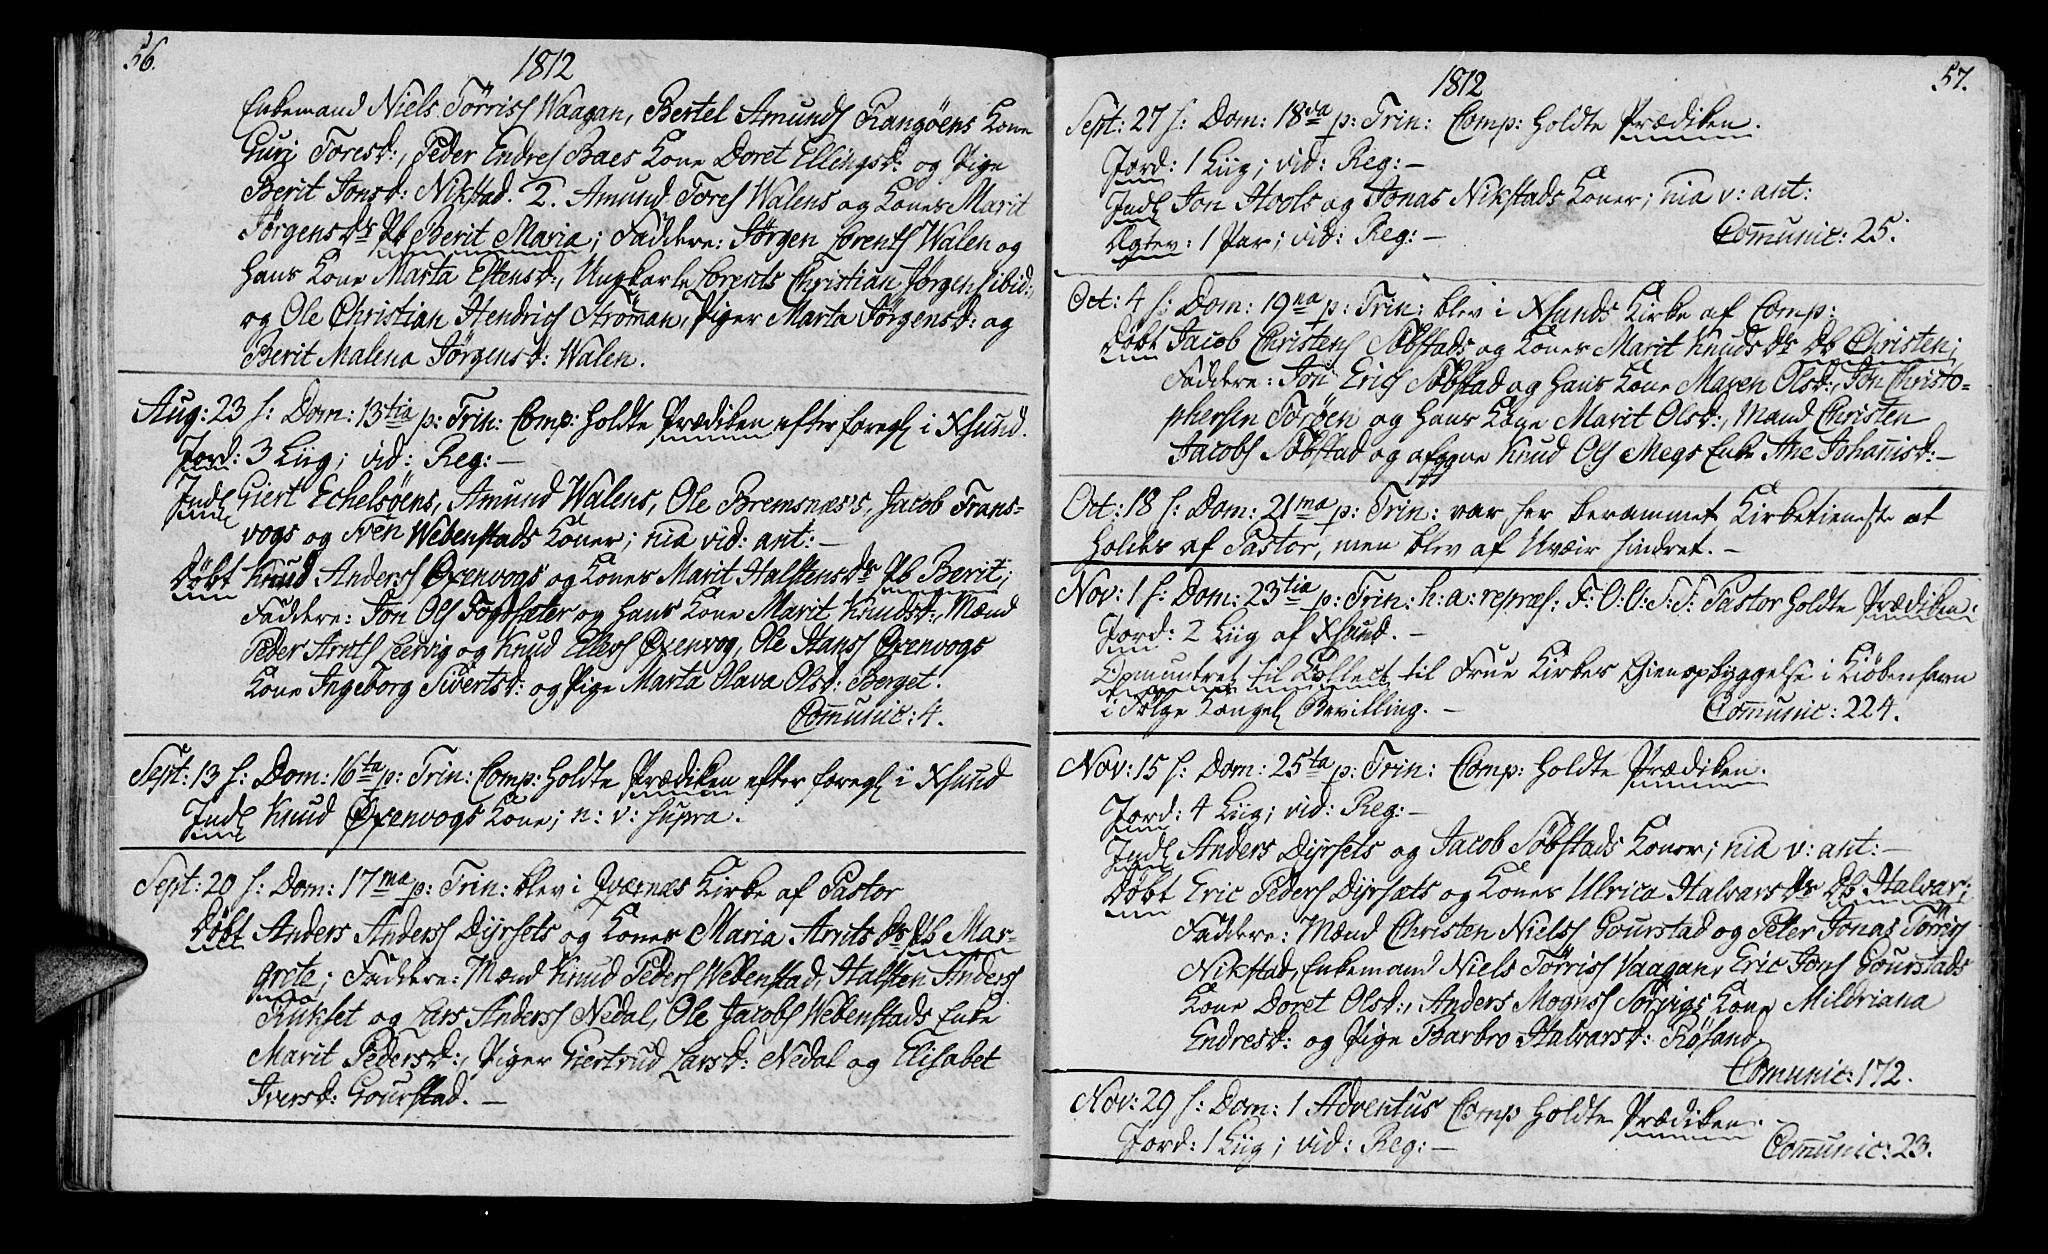 56.
1812
Enkemand Niels Törriss Waagan, Bertel Amunds Rangöens Kone
Guri Toresd:, Peder Endres Baes Kone Doret Ellingsd: og Pige
Berit Jonsd: Nikstad. 2. Amund Tores Walens og Kones Marit
Jörgensdr Pb Berit Maria; Faddere: Jörgen Lorents Walen og
hans Kone Marta Estensd:, Ungkarle Lorents Christian Jörgens ibid:,
og Ole Christian Hendrichs Ströman, Piger Marta Jörgensd: og
Berit Malena Jörgensd: Walen.
Aug: 23 s: Dom: 13tia p: Trin: Comp: holdte Prædiken efter foregl i Xsund.
Jord: 3 Liig; vid: Reg: —
Indl Giert Echelsöens, Amund Walens, Ole Bremsnæs's, Jacob Frans-
vogs og Sven Webenstads Koner; nia vid: ant: —
Döbt Knud Anderss Öxenvogs og Kones Marit Halstensdr Pb Berit;
Faddere: Jon Ols Fogsæter og hans Kone Marit Knudsd:, Mænd
Peder Arnts Leervig og Knud Ellefs Öxenvog, Ole Hanss Öxenvogs
Kone Ingeborg Sivertsd: og Pige Marta Olava Olsd: Berget.
Comunic: 4.
Sept: 13 s: Dom: 16ta p: Trin: Comp: holdte Prædiken efter foregl i Xsund
Indl Knud Öxenvogs Kone; n: v: supra.
Sept: 20 s: Dom: 17ma p: Trin: blev i Qværnæs Kirke af Pastor
Döbt Anders Anderss Dyrsets og Kones Maria Arntsdr Pb Mar-
grete; Faddere: Mænd Knud Peders Webenstad, Halsten Anders
Rukset og Lars Anderss Nedal, Ole Jacobs Webenstads Enke
Marit Pedersd:, Piger Giertrud Larsd: Nedal og Elisabet
Iversd: Gourstad. —
57.
1812
Sept: 27 s: Dom: 18va p: Trin: Comp: holdte Prædiken.
Jord: 1 Liig; vid: Reg: —
Indl Jon Hools og Jonas Nikstads Koner; nia v: ant:
Ægtev: 1 Par; vid: Reg: — Comunic: 25.
Oct: 4 s: Dom: 19na p: Trin: blev i Xsunds Kirke af Comp:
Döbt Jacob Christens Söbstads og Kones Marit Knudsdr Db Christen;
Faddere: Jon Erics Söbstad og hans Kone Maren Olsd:, Jon Christo-
phersen Foröen og hans Kone Marit Olsd:, Mand Christen
Jacobs Söbstad og afgangne Knud Ols Megs Enke Ane Johanisd: —
Oct: 18 s: Dom: 21ma p: Trin: var her berammet Kirketieneste at
holdes af Pastor, men blev af Uveir hindret. —
Nov: 1 s: Dom: 23tia p: Trin: h: a: repræs: F: O: O: S: F: Pastor holdte Prædiken.
Jord: 2 Liig af Xsund. —
Opmuntret til Collect til Frue Kirkes Gienopbyggelse i Kiöbenhavn
i Fölge Kongel Bevilling. — Comunic: 224.
Nov: 15 s: Dom: 25ta p: Trin: Comp: holdte Prædiken.
Jord: 4 Liig; vid: Reg: —
Indl Anders Dyrsets og Jacob Söbstads Koner; nia v: ant: —
Döbt Eric Peders Dyrsæts og Kones Ulrica Halvarsdr Db Halvar;
Faddere: Mænd Christen Niels Gourstad og Peter Jonas Törris
Nikstad, Enkemand Niels Törriss Vaagan, Eric Jons Gourstads
Kone Doret Olsd:, Anders Mogns Sörvigs Kone Mildriana
Endresd: og Pige Barbro Halvarsd: Rösand.
Comunic: 172.
Nov: 29 s: Dom: 1 Adventus Comp holdte Prædiken.
Jord: 1 Liig; vid: Reg: — Comunic: 23.